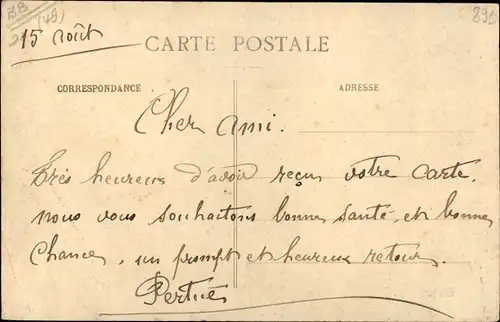 (49)
15 Août
CARTE POSTALE
CORRESPONDANCE
ADRESSE
Cher Ami.
Très heureux d'avoir reçu votre carte.
nous vous souhaitons bonne santé, et bonne
chance, un prompt et heureux retour.